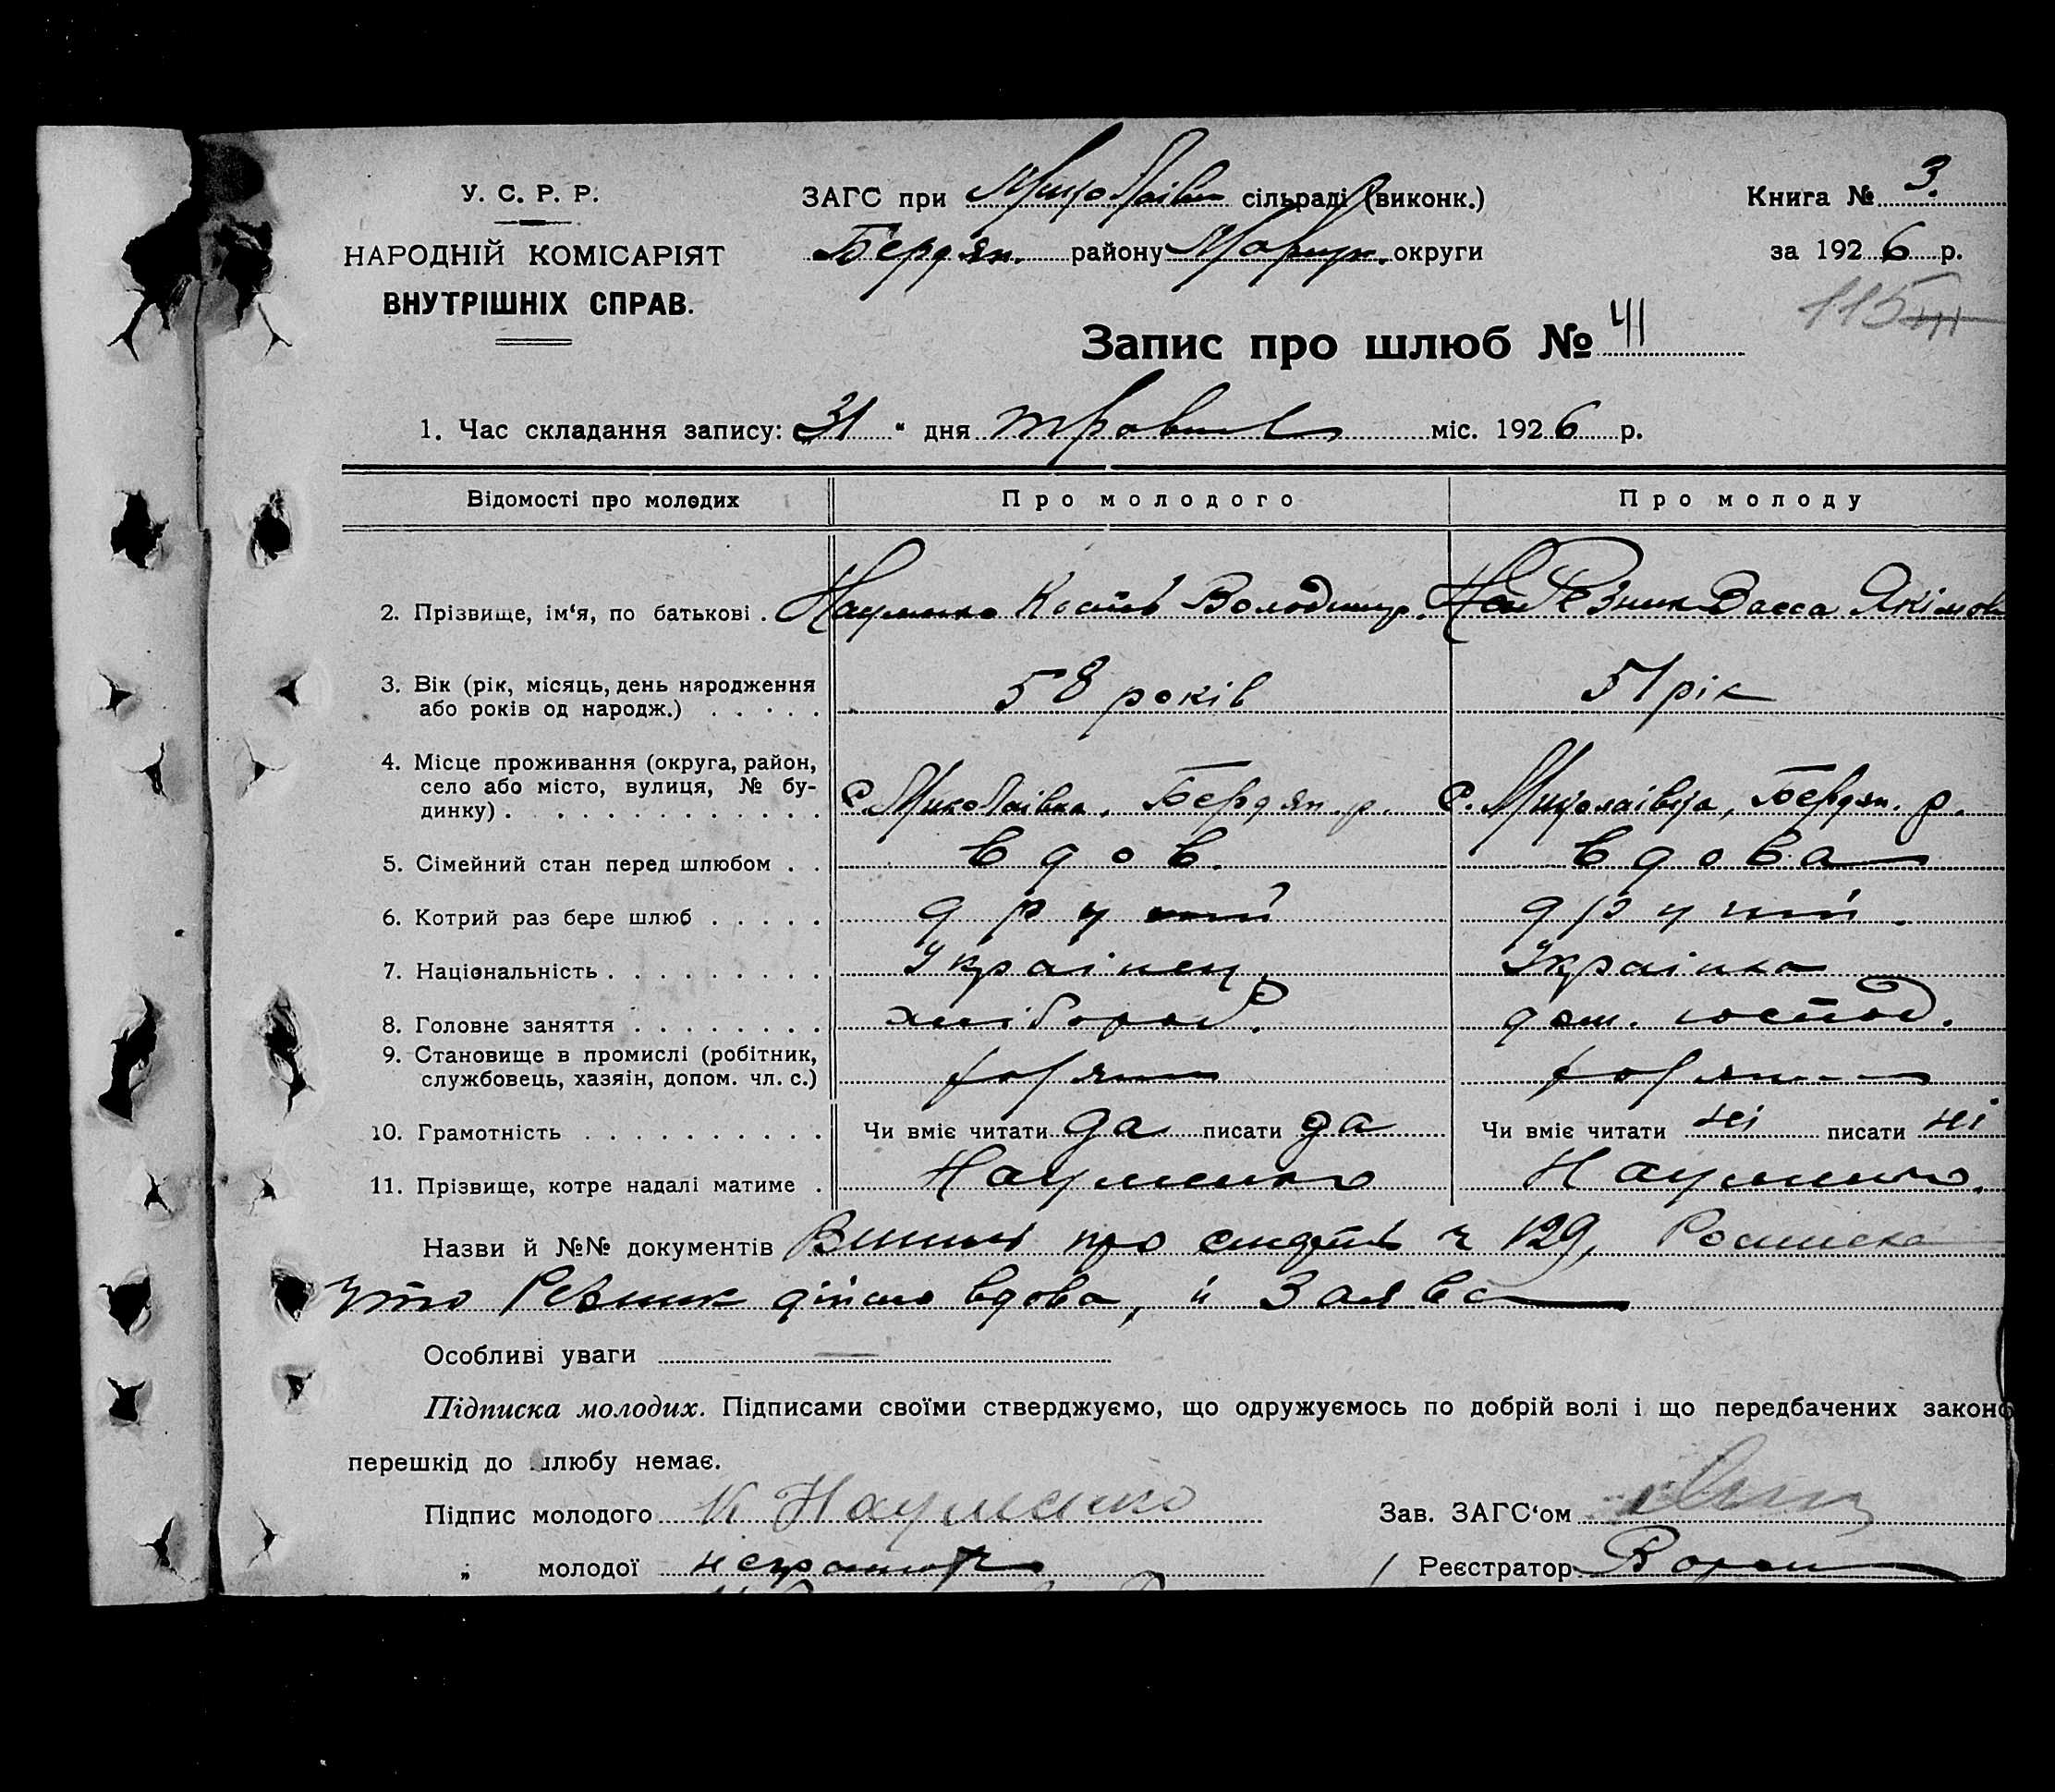 У. С. Р. Р.
НАРОДНІЙ КОМІСАРІЯТ
ВНУТРІШНІХ СПРАВ.
ЗАГС при Миколаівк сільраді (виконк.)
Бердян. району Маріуп. округи
Книга № 3.
за 1926 р.
115
Запис про шлюб № 41
1. Час складання запису: „31“ дня травня міс. 1926 р.
Відомості про молодих Про молодого Про молоду
2. Прізвище, ім‘я, по батькові . Науменко Костів Володимир. Резник Васса Якімов
3. Вік (рік, місяць, день народження
або років од народж.) . . . . . 58 років 51 рік
4. Місце проживання (округа, район,
село або місто, вулиця, № бу-
динку) . . . . . . . . . . . . . с. Миколаівка, Бердян. р. с. Миколаівка, Бердян. р.
5. Сімейний стан перед шлюбом . . вдов. вдова
6. Котрий раз бере шлюб . . . . . другий другий.
7. Національність . . . . . . . . . Украінец. Украінка
8. Головне заняття . . . . . . . . хлібороб. дом. господ.
9. Становище в промислі (робітник,
службовець, хазяін, допом. чл. с.) хазяін
10. Грамотність . . . . . . . . . . Чи вміє читати да писати да Чи вміє читати ні писати ні
11. Прізвище, котре надалі матиме . Науменко Науменко.
Назви й №№ документів про смерть ч 129, Росписка
что Резник дійсно вдова, й Заява
Особливі уваги —
Підписка молодих. Підписами своїми стверджуємо, що одружуємось по добрій волі і що передбачених законо
перешкід до шлюбу немає.
Підпис молодого К Науменко Зав. ЗАГС‘ом
„ молодої неграмотна Реєстратор